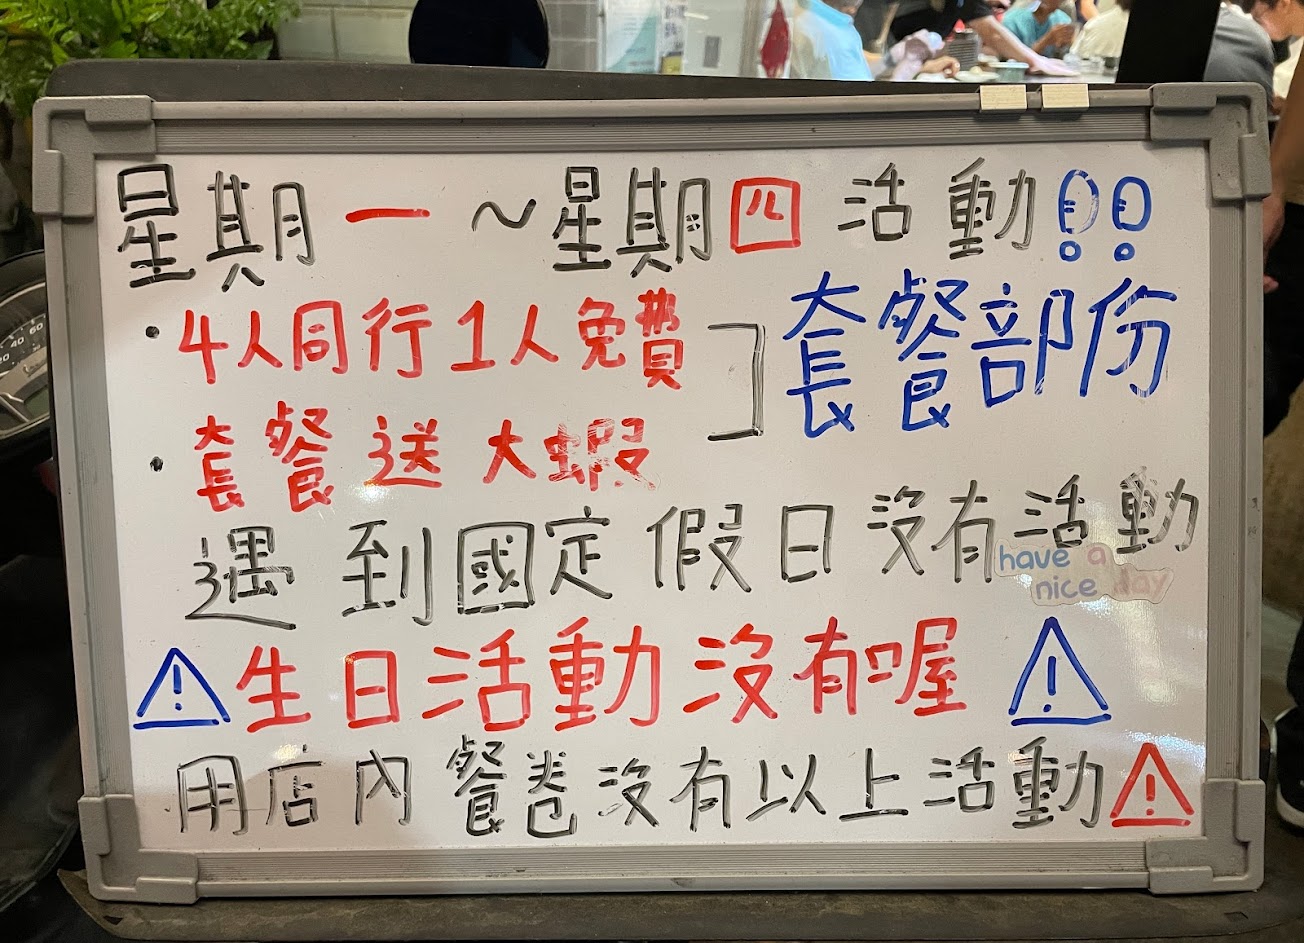 星期一~星期四活動!!
·4人同行1人免費
·套餐送大蝦
套餐部份
遇到國定假日沒有活動
have a
nice day
生日活動沒有喔
用店內餐卷沒有以上活動